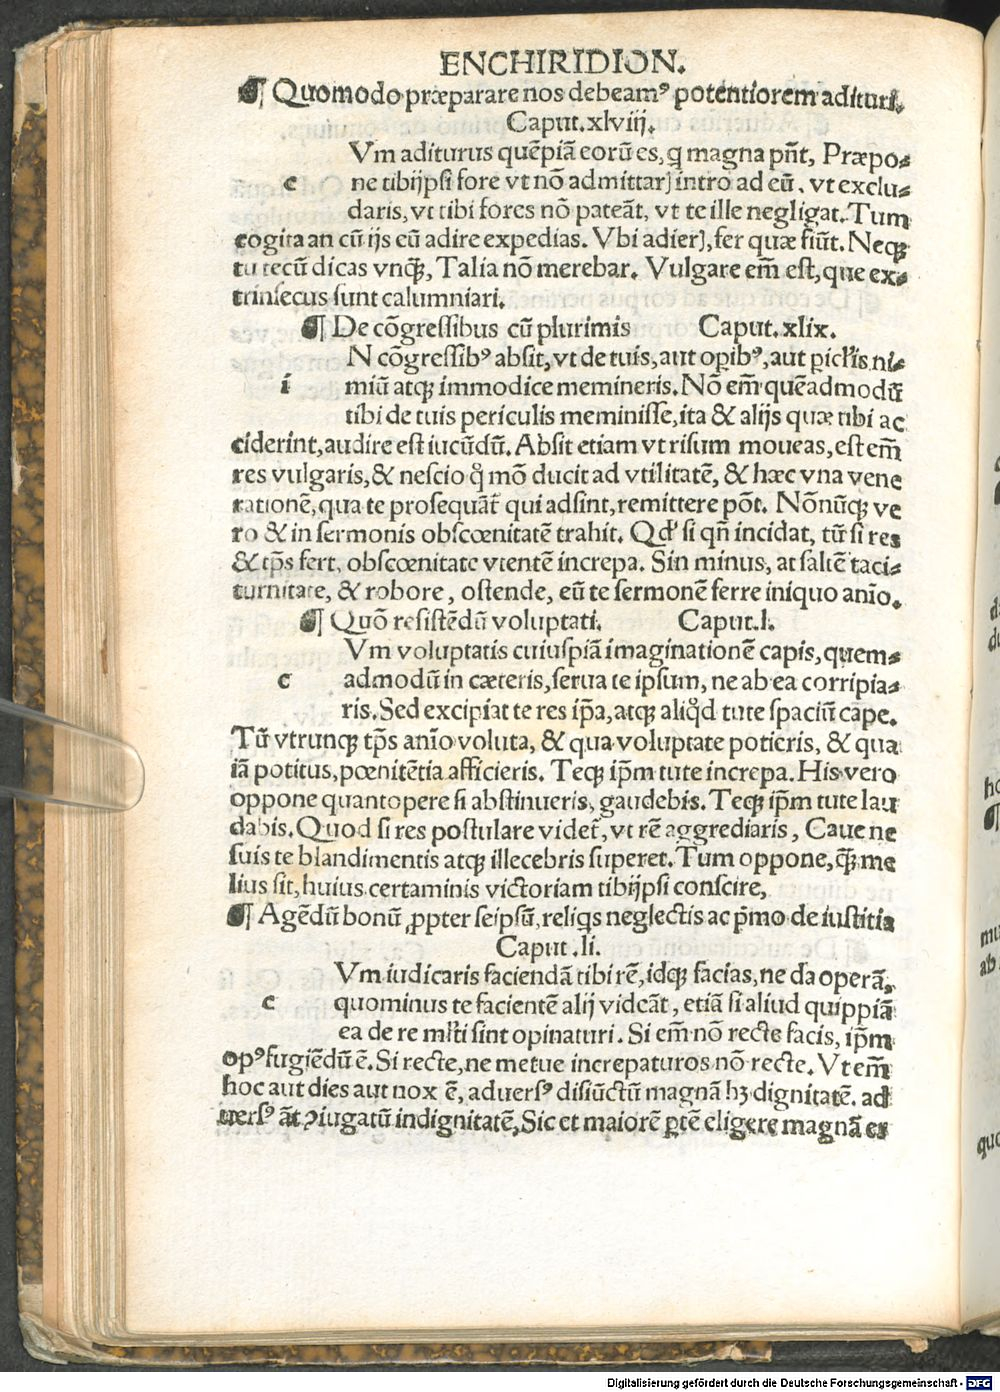 ENCHIRIDION.
¶ Quomodo præparare nos debeamꝰ potentiorem adituri.
Caput.xlviij.
Vm aditurus quēpiā eorū es, q̨ magna pn̄t, Præpo-
c ne tibijpsi fore vt nō admittarꝭ intro ad eū. vt exclu-
daris, vt tibi fores nō pateāt, vt te ille negligat. Tum
cogita an cū ijs eū adire expedias. Vbi adierꝭ, fer quæ fiūt. Neqꝫ
tu tecū dicas vnqꝫ̄, Talia nō merebar. Vulgare em̄ est, que ex-
trinsecus sunt calumniari.
¶ De cōgressibus cū plurimis Caput.xlix.
N cōgressibꝰ absit, vt de tuis, aut oꝑibꝰ, aut ꝑicl'is ni-
i miū atqꝫ immodice memineris. Nō em̄ quēadmodū
tibi de tuis periculis meminisse, ita & alijs quæ tibi ac
ciderint, audire est iucūdū. Absit etiam vt risum moueas, est em̄
res vulgaris, & nescio q̊ mō ducit ad vtilitatē, & hæc vna vene
rationē, qua te prosequāt᷑ qui adsint, remittere pōt. Nōnūqꝫ ve
ro & in sermonis obscœnitatē trahit. Qd' si qn̄ incidat, tū si res
& tp̄s fert, obscœnitate vtentē increpa. Sin minus, at saltē taci-
turnitate, & robore, ostende, eū te sermonē ferre iniquo anīo.
¶ Quō resistēdū voluptati. Caput.l.
Vm voluptatis cuiuspiā imaginationē capis, quem-
c admodū in cæteris, serua te ipsum, ne ab ea corripia-
ris. Sed excipiat te res ip̄a, atqꝫ aliq̊d tute spaciū cape.
Tū vtrunqꝫ tp̄s anīo voluta, & qua voluptate potieris, & qua
iā potitus, pœnitētia afficieris. Teqꝫ ip̄m tute increpa. His vero
oppone quantopere si abstinueris, gaudebis. Teqꝫ ip̄m tute lau
dabis. Quod si res postulare videt᷑, vt rē aggrediaris, Caue ne
suis te blandimentis atqꝫ illecebris superet. Tum oppone, qꝫ̄ me
lius sit, huius certaminis victoriam tibijpsi conscire,
¶ Agēdū bonū ꝓpter seipsū, reliq̨s neglectis ac p̄mo de iustitia
Caput.li.
Vm iudicaris faciendā tibi rē, idqꝫ facias, ne da operā,
c quominus te facientē alij videāt, etiā si aliud quippiā
ea de re ml'ti sint opinaturi. Si em̄ nō recte facis, ip̄m
opꝰ fugiēdū ē. Si recte, ne metue increpaturos nō recte. Vt em̄
hoc aut dies aut nox ē, aduersꝰ disiūctū magnā hꝫ dignitatē. ad
uersꝰ āt ꝯiugatū indignitatē, Sic et maiorē ꝑtē eligere magnā ex
Digitalisierung gefördert durch die Deutsche Forschungsgemeinschaft - DFG